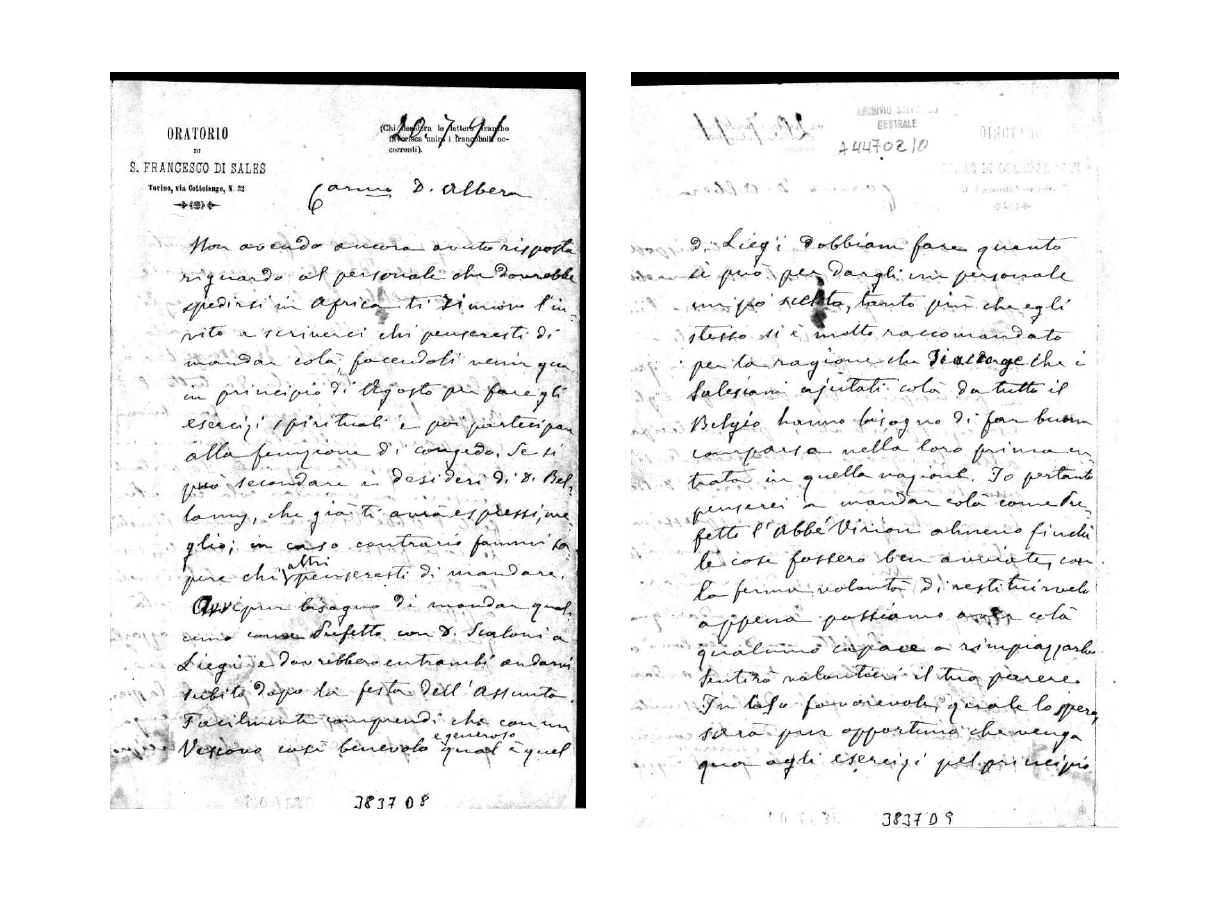 ORATORIO
DI
S. FRANCESCO DI SALES
Torino, via Cottolengo, N. 32
(Chi desidera le lettere franche
favorisca unire i francobolli oc-
correnti).
20.7.91
Carmo D. Albera
Non avendo ancora avuto risposta
riguardo al personale che dovrebbe
spedirsi in Africa ti rinnovo l'in-
vito a scriverci chi penseresti di
mandar colà, facendoli venir qua
in principio di Agosto per fare gli
esercizi spirituali e poi partecipar
alla funzione di congedo. Se si
può secondare i desideri di D. Bel-
lamy, che già ti avrà espressi, me-
glio; in caso contrario fammi sa
pere chi altri penseresti di mandare.
Avvi pur bisogno di mandar qual-
cuno come Prefetto con D. Scaloni a
Liegi e dovrebbero entrambi andarvi
subito dopo la festa dell'Assunta
Facilmente comprendi che con un
Vescovo così benevolo e generoso qual è quel
ARCHIVIO SALESIANO
CENTRALE
A4470210
di Liegi dobbiam fare quanto
si può per dargli un personale
un po' scelto, tanto più che egli
stesso si è molto raccomandato
per la ragione che che i
Salesiani ajutati colà da tutto il
Belgio hanno bisogno di far buona
comparsa nella loro prima en
trata in quella nazione. Io pertanto
penserei a mandar colà come Pre-
fetto l'Abbé Virion almeno finchè
le cose fossero ben avviate, con
la ferma volontà di restituirvelo
appena possiamo colà
qualcuno capace a rimpiazzarlo
Sentirò volontieri il tuo parere.
In caso favorevole, quale lo spero,
sarà pur opportuno che venga
qua agli esercizi pel principio
3837 D 8
3837 D 9